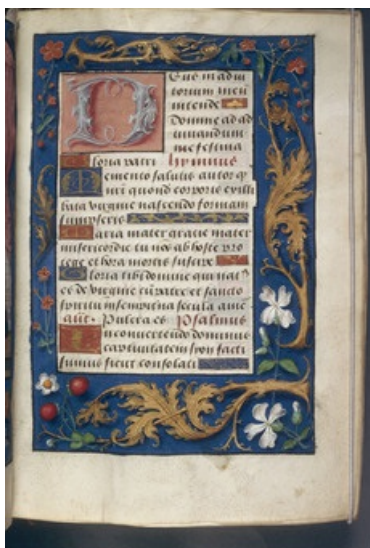 Deus in adiu
torium meū
intende
Domine ad ad
iuuandum
me festina
Gloria patri hymnus
Memento salutis autor q
nrī quond corporis ex illi
bata virgine nascendo formam
sumpseris
Maria mater gracie mater
misericordie tu nos ab hoste pro
tege et hora mortis suscipe
Gloria tibi domine qui nat
es de virgine cū patre et sancto
spiritu in sempiterna secula ame
ant Pulcra es Psalmus
In conuertendo dominus
captiuitatem syon facti
sumus sicut consolati